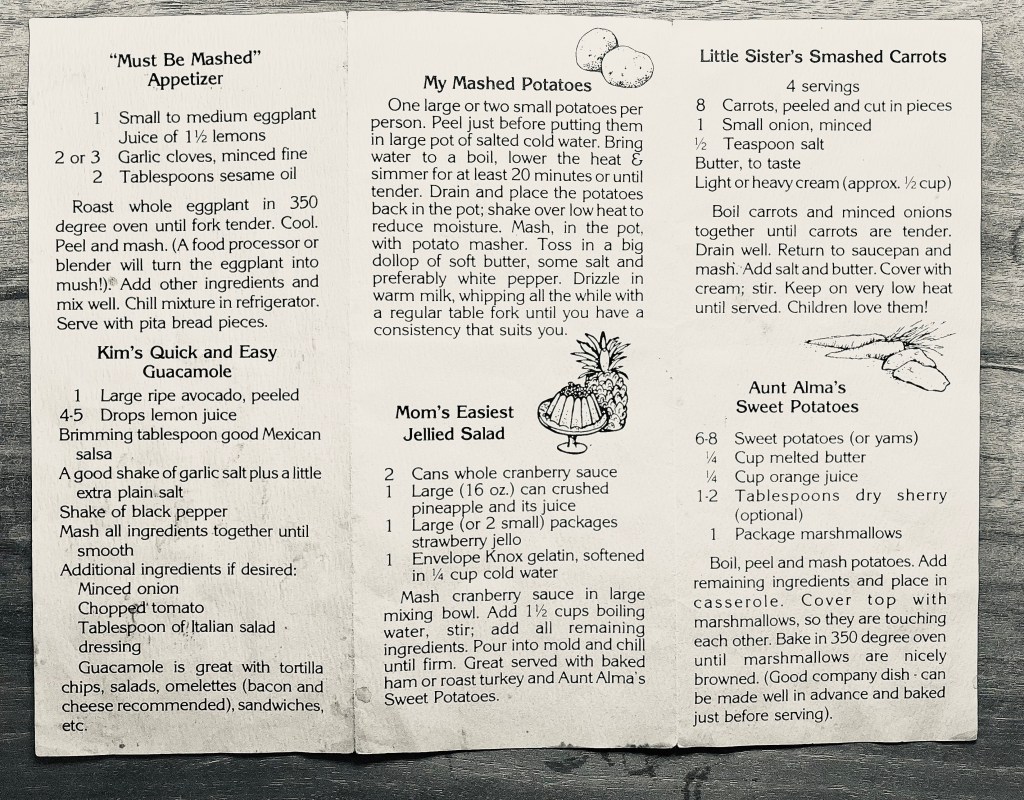 "Must Be Mashed"
Appetizer
1 Small to medium eggplant
Juice of 1½ lemons
2 or 3 Garlic cloves, minced fine
2 Tablespoons sesame oil
Roast whole eggplant in 350
degree oven until fork tender. Cool.
Peel and mash. (A food processor or
blender will turn the eggplant into
mush!). Add other ingredients and
mix well. Chill mixture in refrigerator.
Serve with pita bread pieces.
Kim's Quick and Easy
Guacamole
1 Large ripe avocado, peeled
4-5 Drops lemon juice
Brimming tablespoon good Mexican
salsa
A good shake of garlic salt plus a little
extra plain salt
Shake of black pepper
Mash all ingredients together until
smooth
Additional ingredients if desired:
Minced onion
Chopped tomato
Tablespoon of Italian salad
dressing
Guacamole is great with tortilla
chips, salads, omelettes (bacon and
cheese recommended), sandwiches,
etc.
My Mashed Potatoes
One large or two small potatoes per
person. Peel just before putting them
in large pot of salted cold water. Bring
water to a boil, lower the heat &
simmer for at least 20 minutes or until
tender. Drain and place the potatoes
back in the pot; shake over low heat to
reduce moisture. Mash, in the pot,
with potato masher. Toss in a big
dollop of soft butter, some salt and
preferably white pepper. Drizzle in
warm milk, whipping all the while with
a regular table fork until you have a
consistency that suits you.
Mom's Easiest
Jellied Salad
2 Cans whole cranberry sauce
1 Large (16 oz.) can crushed
pineapple and its juice
1 Large (or 2 small) packages
strawberry jello
1 Envelope Knox gelatin, softened
in ¼ cup cold water
Mash cranberry sauce in large
mixing bowl. Add 1½ cups boiling
water, stir; add all remaining
ingredients. Pour into mold and chill
until firm. Great served with baked
ham or roast turkey and Aunt Alma's
Sweet Potatoes.
Little Sister's Smashed Carrots
4 servings
8 Carrots, peeled and cut in pieces
1 Small onion, minced
½ Teaspoon salt
Butter, to taste
Light or heavy cream (approx. ½ cup)
Boil carrots and minced onions
together until carrots are tender.
Drain well. Return to saucepan and
mash. Add salt and butter. Cover with
cream; stir. Keep on very low heat
until served. Children love them!
Aunt Alma's
Sweet Potatoes
6-8 Sweet potatoes (or yams)
¼ Cup melted butter
¼ Cup orange juice
1-2 Tablespoons dry sherry
(optional)
1 Package marshmallows
Boil, peel and mash potatoes. Add
remaining ingredients and place in
casserole. Cover top with
marshmallows, so they are touching
each other. Bake in 350 degree oven
until marshmallows are nicely
browned. (Good company dish - can
be made well in advance and baked
just before serving).